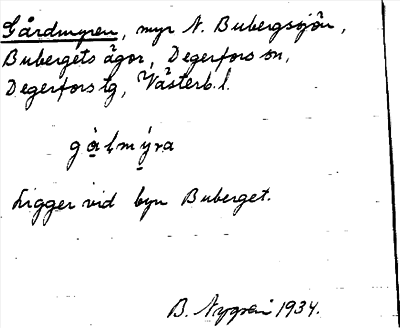 Gårdmyren, myr N. Bubergssjön,
Bubergets ägor, Degerfors sn,
Degerfors tg, Västerb. l.
Ligger vid byn Buberget.
B. Nygren 1934.